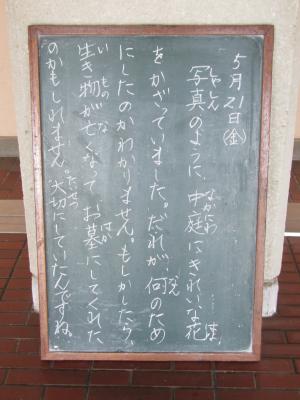 5月21日(金)
写真のように、中庭にきれいな花
をかざっていました。だれが何のため
にしたのかわかりません。もしかしたら、
生き物が亡くなって お墓にしてくれた
のかもしれません。大切にしていたんですね。